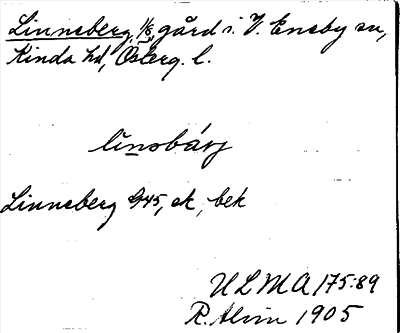 Linneberg, 1/8, gård i V. Eneby sn,
Kinda hd, Österg. l.
linəbárj
Linneberg G45, ek, bek
ULMA 175:89
R. Alvin 1905